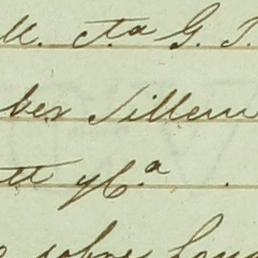 ll. cta G. T.
ber Sillem
tt y Ca
sobre Lon